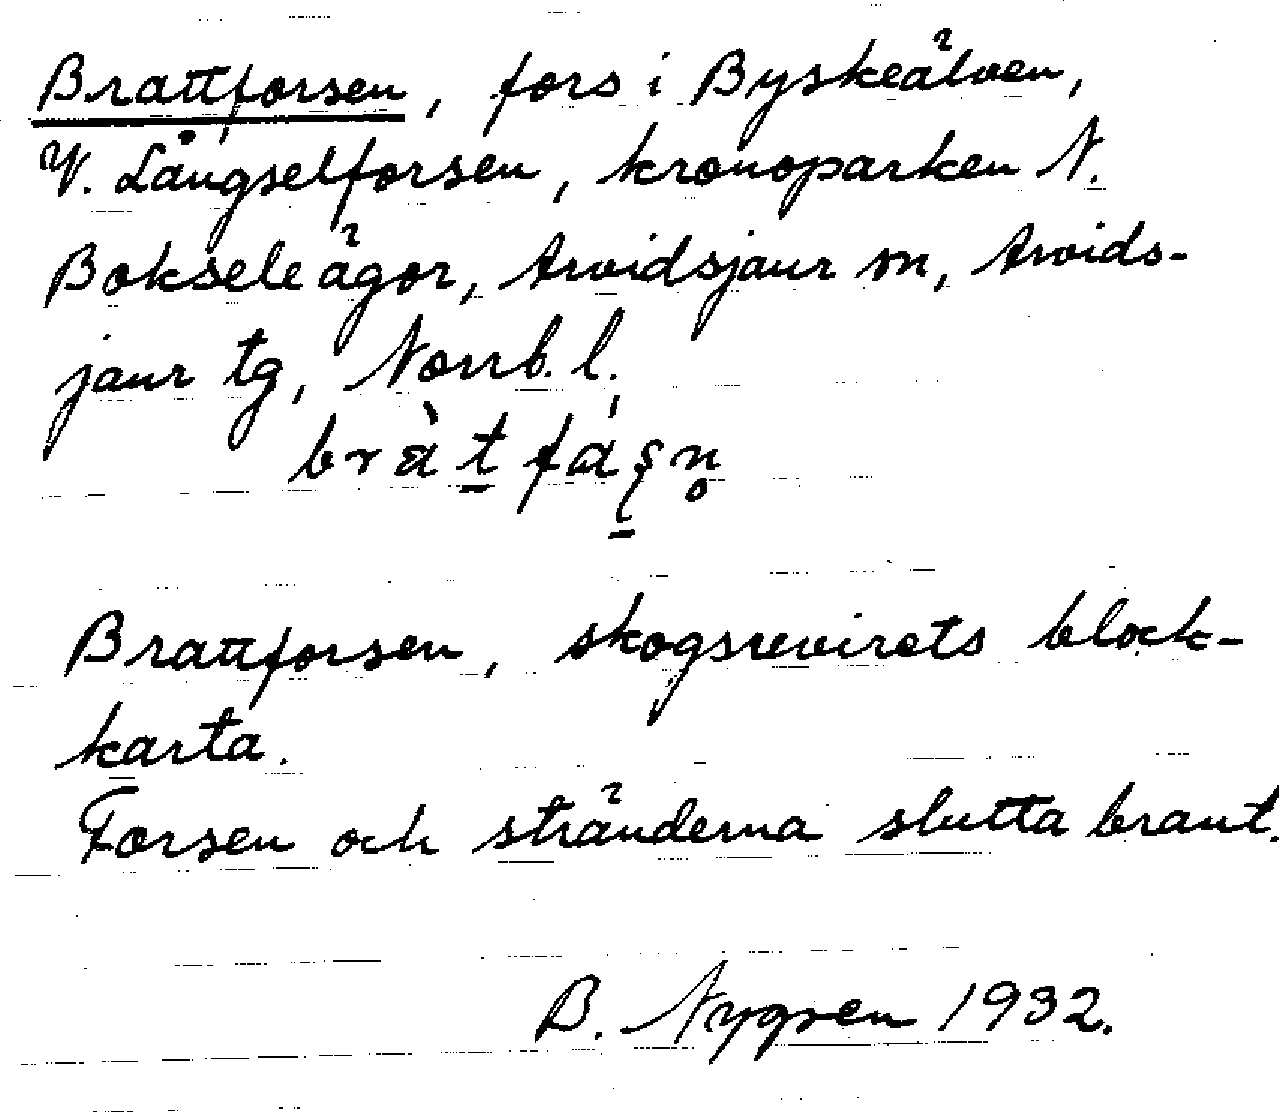 Brattforsen, fors i Byskeälven,
V. Långselforsen, kronoparken N.
Boksele ägor, Arvidsjaur sn, Arvids-
jaur tg, Norrb. l.
Brattforsen, skogsrevirets block-
karta.
Forsen och stränderna slutta brant.
B. Nygren 1932.